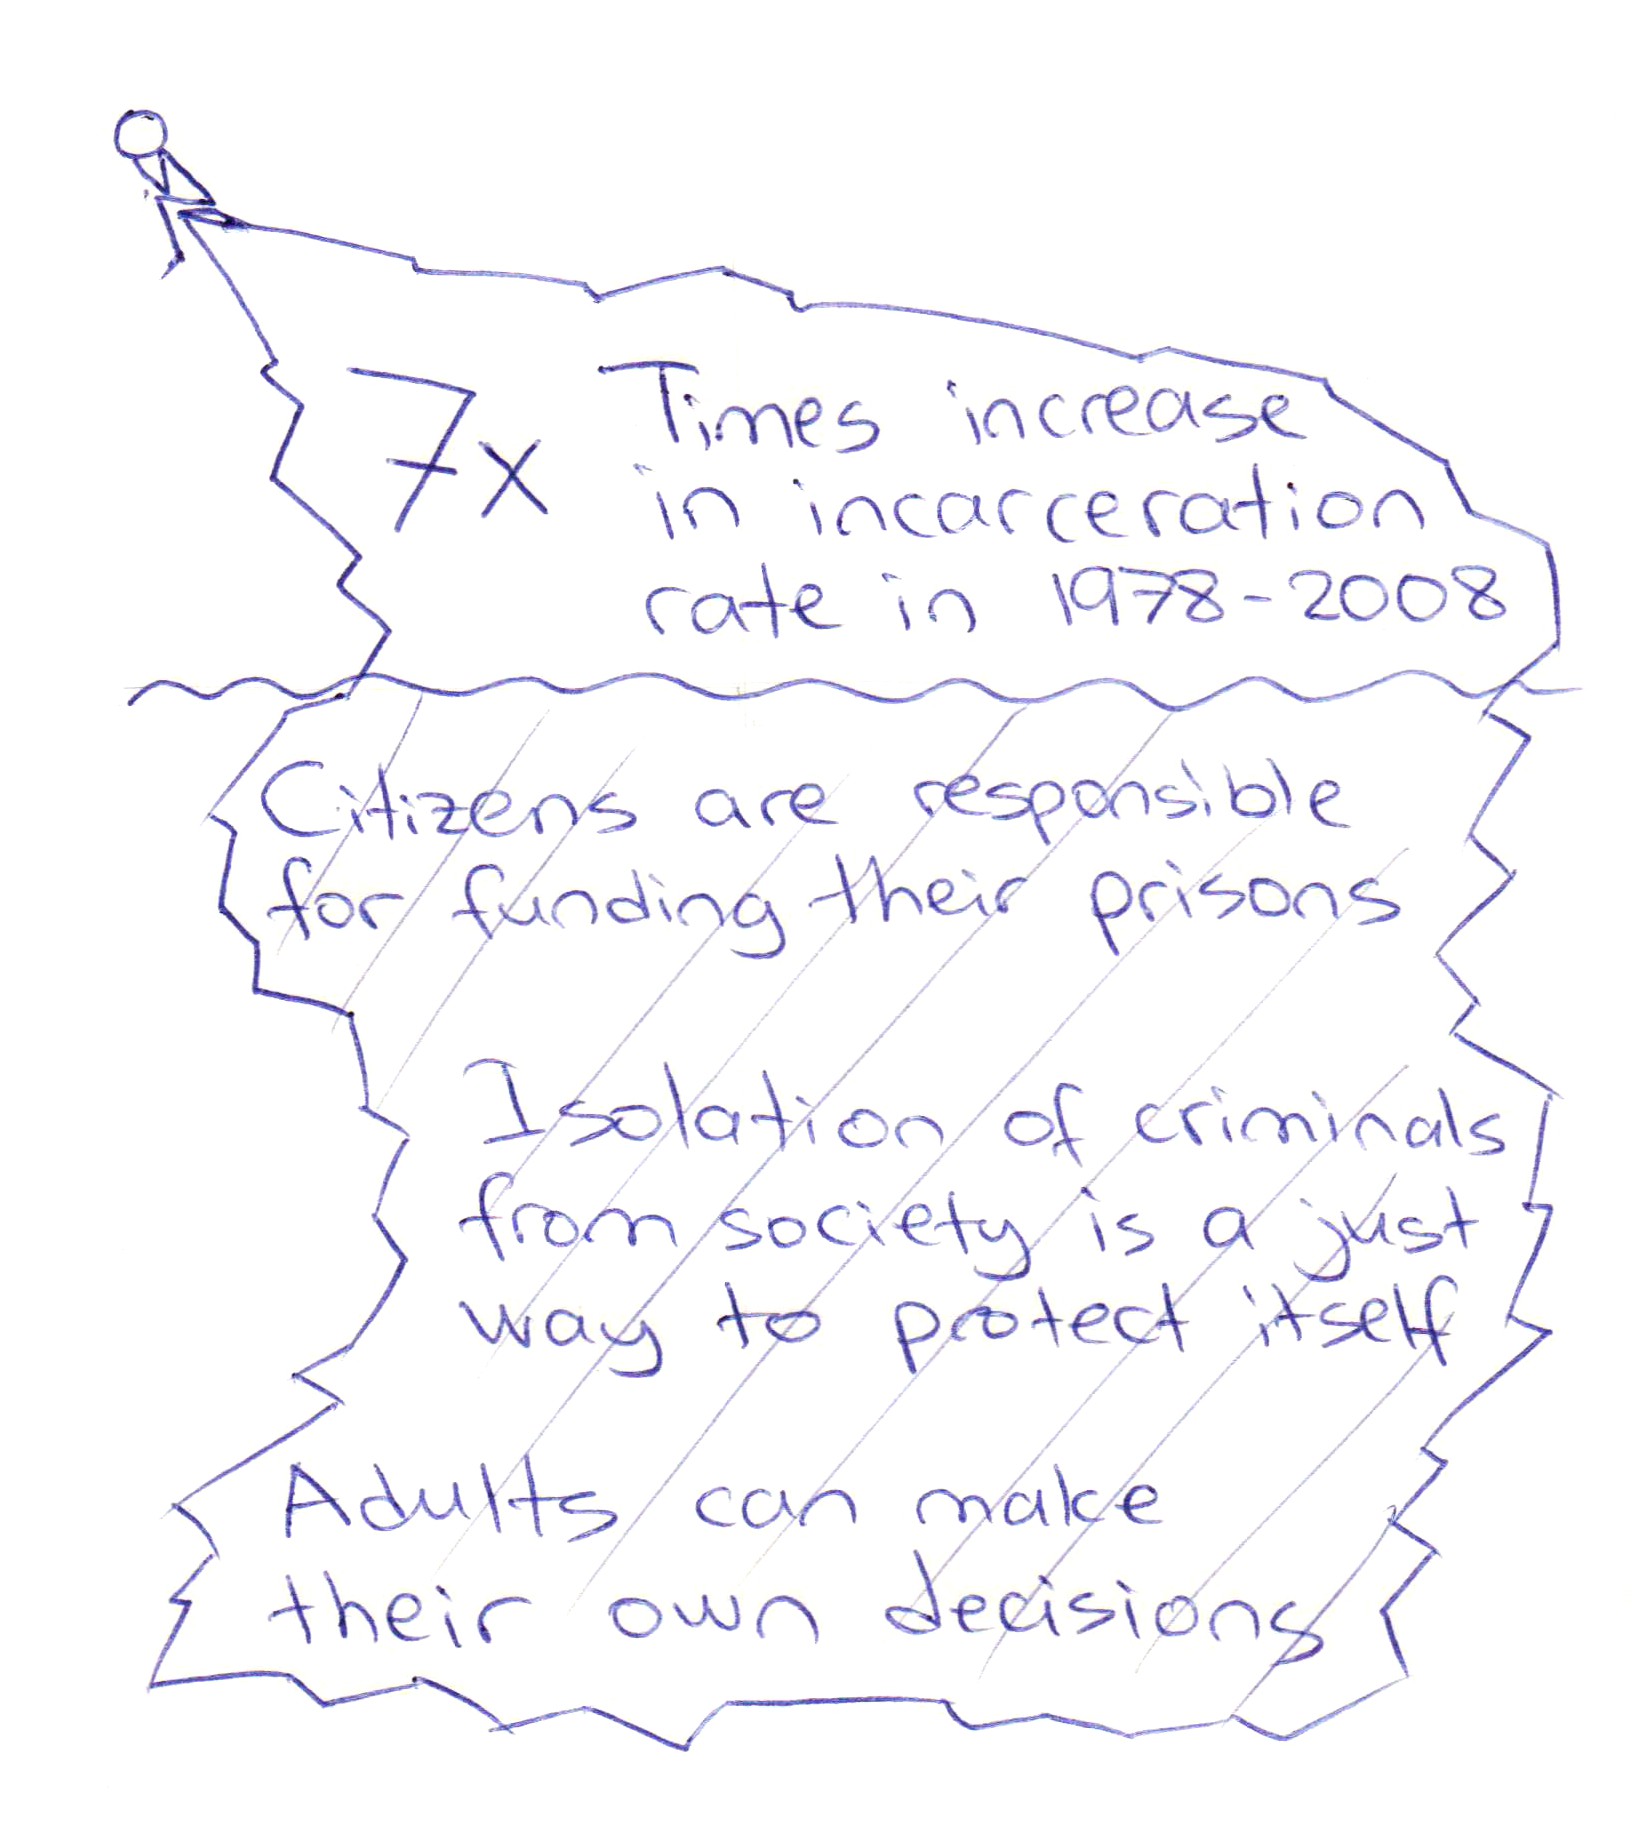 7x Times increase
in incarceration
rate in 1978-2008
Citizens are responsible
for funding their prisons
Isolation of criminals
from society is a just
way to protect itself
Adults can make
their own decisions